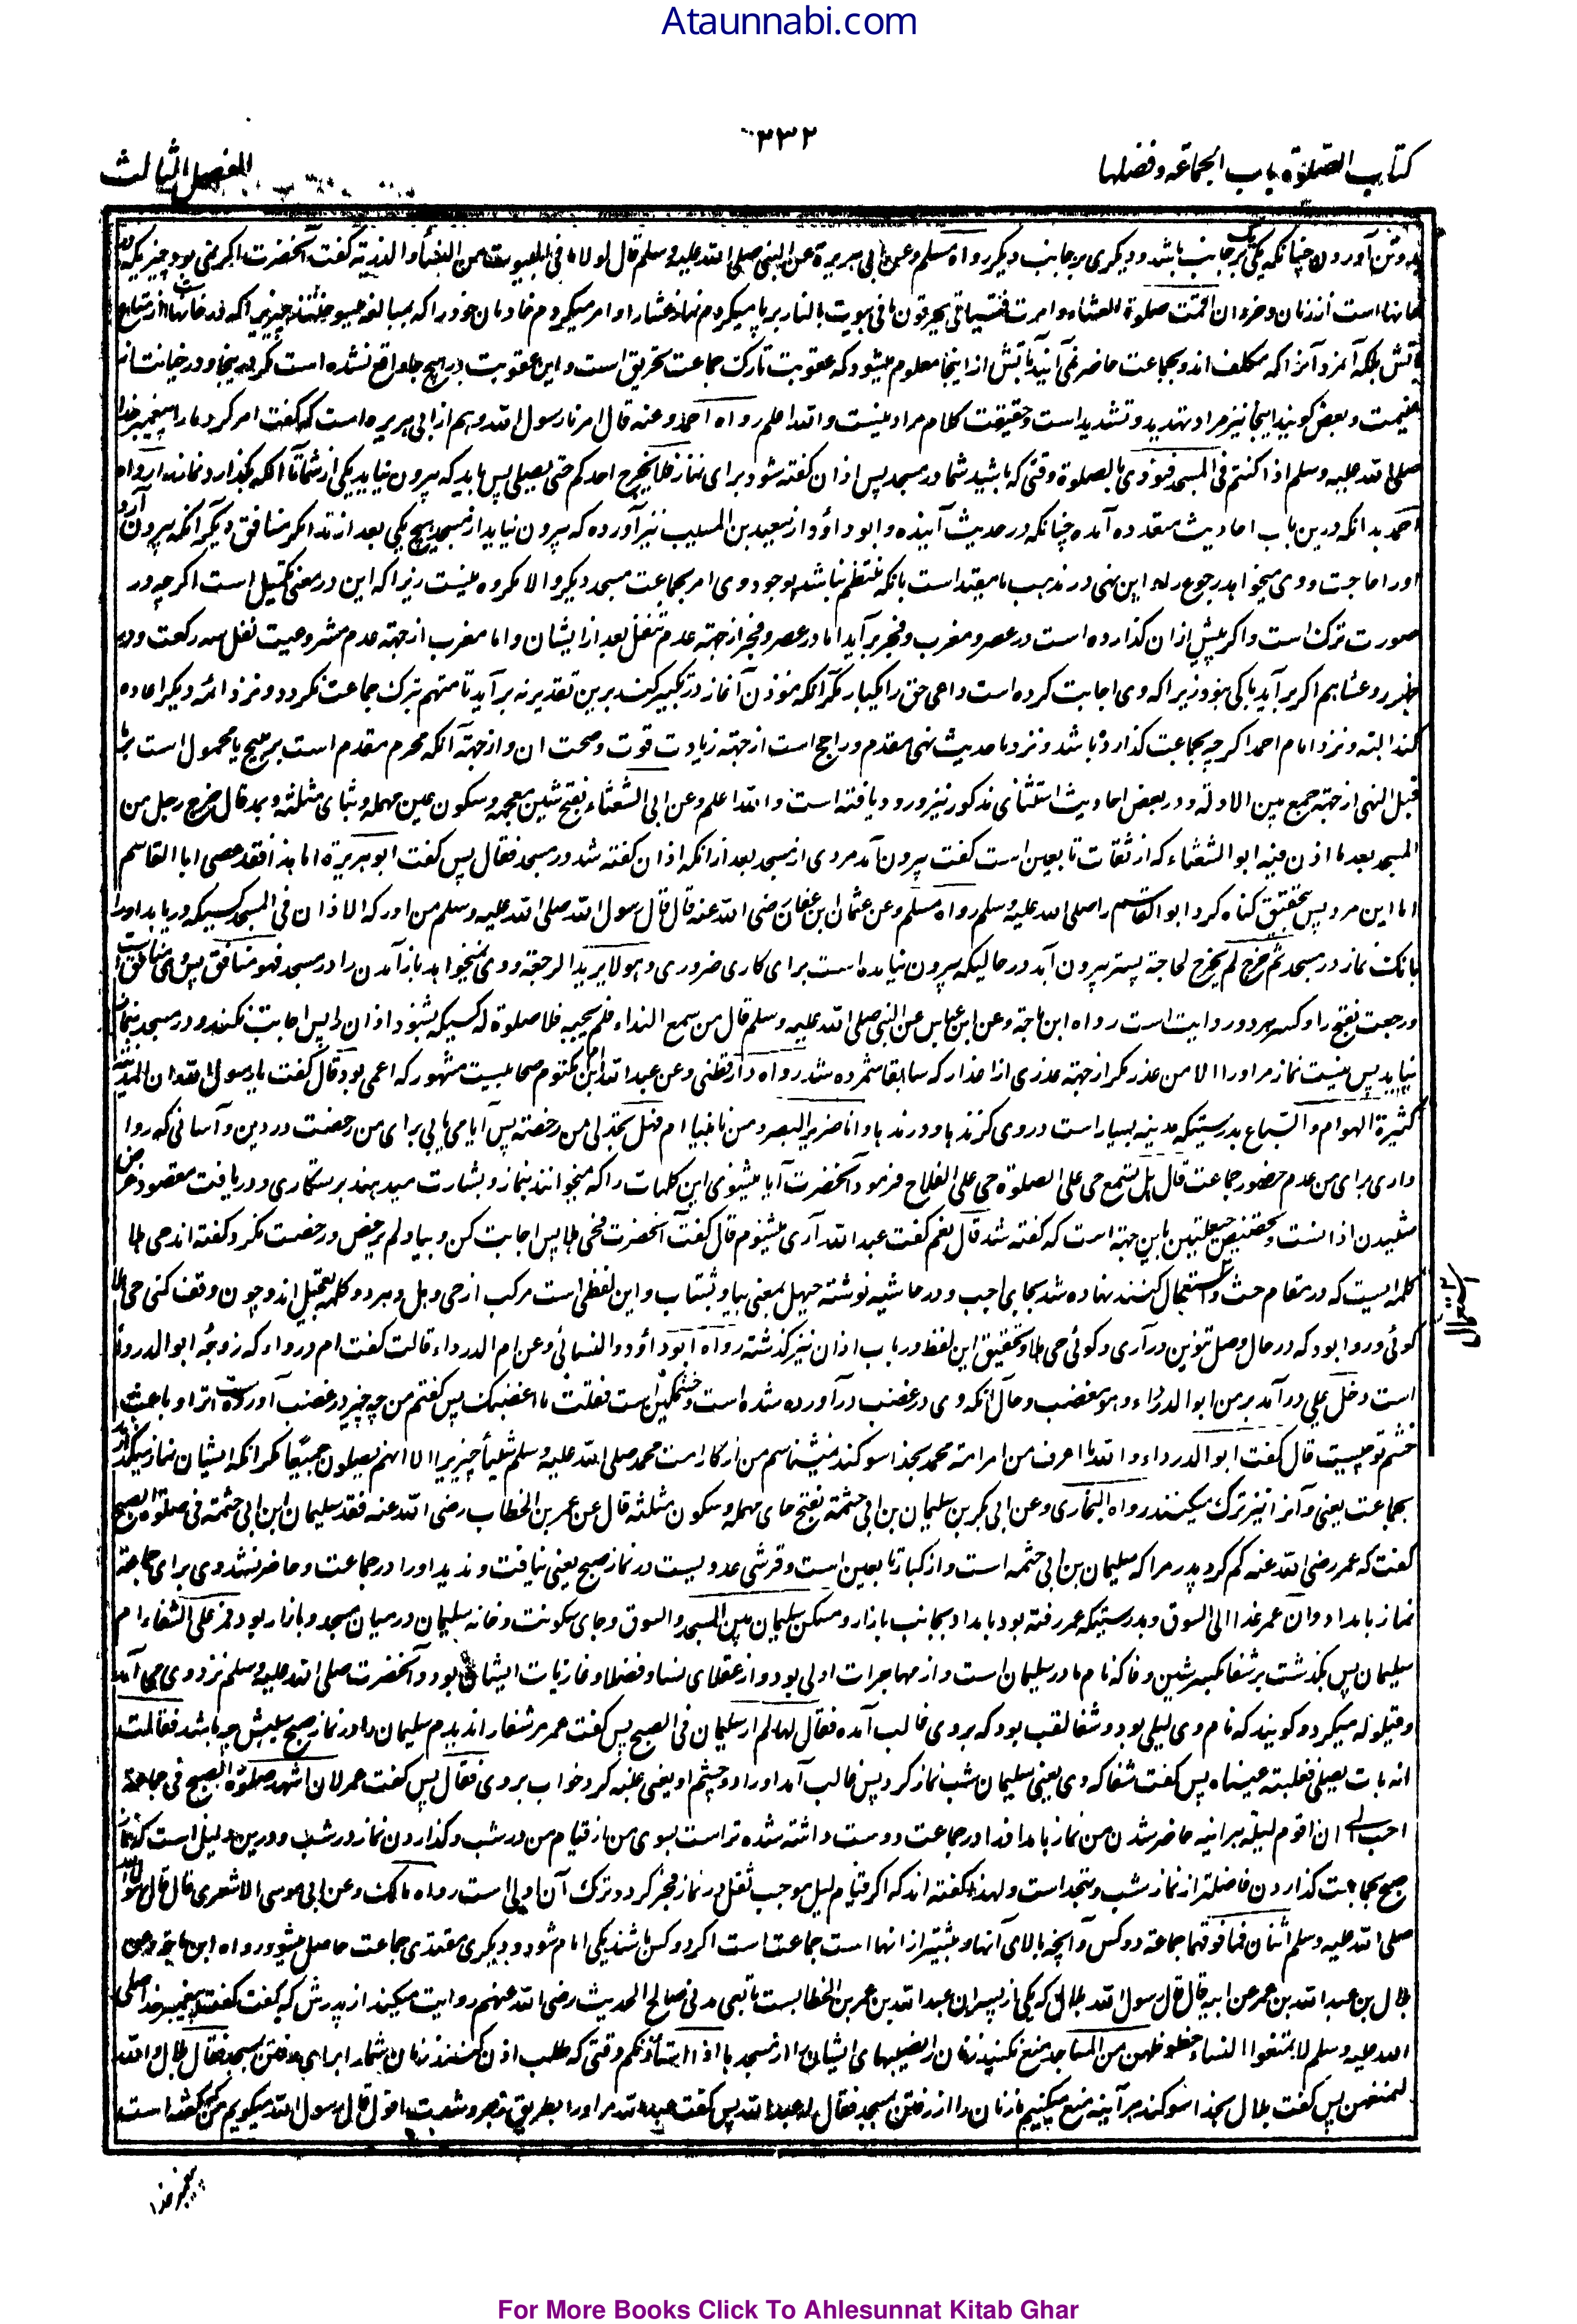 Ataunnabi.com
کتاب الصلوٰة باب الجماعة وفضلها
۳۳۲
الفصل الثالث
جانب باشد و دیگری بر جانب دیگر رواه مسلم وعن ابی هریرة عن النبی صلی الله علیه وسلم قال لولا ما فی البیوت من النساء والذریة گفت آنحضرت اگر نمی بود چیزیکه در
خانها است از زنان و خردان اقمت صلوة العشاء وامرت فتیانی یحرقون ما فی بیوت بالنار بر پا میکردم نماز عشا را و امر میکردم خادمان خود را که
آتش بلکه آمرد آنرا که مکلف اند و بجماعت حاضر نمی آیند بآتش از اینجا معلوم میشود که عقوبت تارک جماعت تحریق است و این عقوبت در هیچ جا واقع نشده است مگر در اینجا و در خیانت از
غنیمت و بعض گویند اینجا نیز مراد تهدید و تشدید است و حقیقت کلام مراد نیست والله اعلم رواه احمد وعنه قال امرنا رسول الله وهم از ابی هریره است که گفت امر کرد ما را پیغمبر خدا
صلی الله علیه وسلم اذا کنتم فی المسجد فنودی بالصلوة وقتی که باشید شما در مسجد پس اذان گفته شود برای نماز فلا یخرج احدکم حتی یصلی پس باید که بیرون نیاید یکی از شما تا آنکه بگذارد نماز را رواه
احمد بدانکه درین باب احادیث متعدده آمده چنانکه در حدیث آینده و ابو داؤد از سعید بن المسیب نیز آورده که بیرون نیاید از مسجد هیچ یکی بعد از ندا مگر منافق مگر آنکه بیرون آرد
او را حاجت و وی میخواهد رجوع را و این نهی در مذهب ما مقید است بانکه منتظم نباشد بوجود وی امر جماعت مسجد دیگر و الا مکروه نیست زیرا که این در معنی تکمیل است اگر چه در
صورت ترک است و اگر پیش ازان گذارده است در عصر و مغرب و فجر برآید اما در عصر و فجر از جهة عدم تنفل بعد از ایشان و اما مغرب از جهة عدم مشروعیت نفل سه رکعت و در
ظهر و عشا هم اگر برآید باکی نبود زیرا که وی اجابت کرده است داعی حق را یکبار مگر آنکه مؤذن آغاز در تکبیر کند برین تقدیر نه برآید تا متهم بترک جماعت نگردد و نزد ائمه دیگر اعاده
کند البته و نزد امام احمد اگر چه بجماعت گذارده باشد و نزد ما حدیث نهی مقدم و راجح است از جهة زیادت قوت و صحت آن و از جهة آنکه محرم مقدم است بر مبیح یا محمول است بر ما
قبل النهی از جهة جمع بین الادلة و در بعض احادیث استثنای مذکور نیز ورود یافته است والله اعلم وعن ابی الشعثاء بفتح شین معجمه و سکون عین مهمله و ثبای مثلثه و بمد قال خرج رجل من
المسجد بعد ما اذن فیه ابو الشعثاء که از ثقات تابعین است گفت بیرون آمد مردی از مسجد بعد ازانکه اذان گفته شد در مسجد فقال پس گفت ابو هریرة اما هذا فقد عصی ابا القاسم
اما این مرد پس بتحقیق گناه کرد ابو القاسم را صلی الله علیه وسلم رواه مسلم وعن عثمان ابن عفان رضی الله عنه قال قال رسول الله صلی الله علیه وسلم من ادرکه الاذان فی المسجد کسیکه دریابد او را
بانگ نماز در مسجد ثم خرج لم یخرج لحاجة پستر بیرون آید در حالیکه بیرون نیامده است برای کاری ضروری وهو لا یرید الرجعة و وی نمیخواهد بازآمدن را در مسجد فهو منافق پس وی منافق است
ورجعت بفتح را و کسر هر دو روایت است رواه ابن ماجة وعن ابن عباس عن النبی صلی الله علیه وسلم قال من سمع النداء فلم یجبه فلا صلوة له کسیکه بشنود اذان را پس اجابت نکند و در مسجد
نیاید پس نیست نماز مر او را الا من عذر مگر از جهة عذری از اعذار که سابقا شمرده شد رواه دارقطنی وعن عبد الله ابن ام مکتوم صحابیست مشهور که اعمی بود قال گفت یا رسول الله ان المدینة
کثیرة الهوام والسباع بدرستیکه مدینه بسیار است در وی گزندها و درندها وانا ضریر البصر و من نابینا ام فهل تجد لی من رخصة پس آیا می یابی برای من رخصت در دین و آسانی که روا
داری برای من عدم حضور جماعت قال هل تسمع حی علی الصلوة حی علی الفلاح فرمود آنحضرت آیا میشنوی این کلمات را که میخوانند بنماز و بشارت میدهند برستگاری و دریافت مقصود غرض
شنیدن اذانست و تخصیص حیعلتین باین جهة است که گفته شد قال نعم گفت عبد الله آری میشنوم قال گفت آنحضرت فحی هلا پس اجابت کن و بیا ولم یرخص و رخصت نکرد و گفته اند حی هلا
کلمه ایست که در مقام حث و استعجال کنند نهاده شد بجای اجب و در حاشیه نوشته حیهل بمعنی بیا و بشتاب و این لفظی است مرکب از حی و هل و هر دو کلمه تعجیل اند و چون وقف کنی حی هلا
گوئی و روا بود که در حال وصل تنوین درآری و گوئی حی هلا و تحقیق این لفظ در باب اذان نیز گذشته رواه ابوداؤد والنسائی وعن ام الدرداء قالت گفت ام درداء که زوجه ابو الدرداء
است دخل علی درآمد بر من ابو الدرداء وهو مغضب و حال آنکه وی در غضب درآورده شده است و خشمگین است فقلت ما اغضبک پس گفتم من چه چیز در غضب آورده است ترا و باعث
خشم تو چیست قال گفت ابو الدرداء والله ما اعرف من امر امة محمد بخدا سوگند نمیشناسم من از کار امت محمد صلی الله علیه وسلم شیئا چیزیرا الا انهم یصلون جمیعا مگر آنکه ایشان نماز میگذارند
بجماعت یعنی و آنرا نیز ترک میکنند رواه البخاری وعن ابی بکر بن سلیمان بن ابی حثمة بفتح حای مهمله و سکون مثلثه قال عن عمر بن الخطاب رضی الله عنه فقد سلیمان ابن ابی حثمة فی صلوة الصبح
گفت که عمر رضی الله عنه گم کرد پدر مرا که سلیمان بن ابی حثمه است و از کبار تابعین است و قرشی عدویست در نماز صبح یعنی نیافت و ندید او را در جماعت و حاضر نشد وی برای جماعة
نماز بامداد وان عمر غدا الی السوق و بدرستیکه عمر رفته بود بامداد بجانب بازار ومسکن سلیمان بین المسجد والسوق و جای سکونت و خانه سلیمان در میان مسجد و بازار بود فمر علی الشفاء ام
سلیمان پس بگذشت بر شفا بکسر شین و فا که نام مادر سلیمان است و از مهاجرات اولی بود و از عقلای نسا و فضلا و غازیات ایشان بود و آنحضرت صلی الله علیه وسلم نزد وی می آمد
و قیلوله میکرد و گویند که نام وی لیلی بود و شفا لقب بود که بروی غالب آمده فقال لها لم ار سلیمان فی الصبح پس گفت عمر مر شفا را ندیدم سلیمان را در نماز صبح سببش چه باشد فقالت
انه بات یصلی فغلبته عیناه پس گفت شفا که وی یعنی سلیمان شب نماز کرد پس غالب آمد او را دو چشم او یعنی غلبه کرد خواب بروی فقال پس گفت عمر لان اشهد صلوة الصبح فی جماعة
احب الی ان اقوم لیلة هر آینه حاضر شدن من نماز بامداد را در جماعت دوست داشته شده تراست بسوی من از قیام من در شب و گذاردن نماز در شب و درین دلیل است که نماز
صبح بجماعت گذاردن فاضلتر از نماز شب و تهجد است و لهذا گفته اند که اگر قیام لیل موجب ثقل در نماز فجر گردد ترک آن اولی است رواه مالک وعن ابی موسی الاشعری قال قال رسول الله
صلی الله علیه وسلم اثنان فما فوقهما جماعة دو کس و آنچه بالای آنها و بیشتر از انها است جماعت است اگر دو کس باشند یکی امام شود و دیگری مقتدی جماعت حاصل میشود رواه ابن ماجة وعن
بلال بن عبد الله بن عمر عن ابیه قال قال رسول الله بلال که یکی از پسران عبد الله بن عمر بن الخطابست تابعی مدنی صالح الحدیث رضی الله عنهم روایت میکند از پدرش که گفت گفت پیغمبر خدا صلی
الله علیه وسلم لا تمنعوا النساء حظوظهن من المساجد منع نکنید زنان را نصیبهای ایشان را از مسجد ها اذا استأذنکم وقتی که طلب اذن کنند زنان شما را برای رفتن بمسجد فقال بلال والله
لنمنعهن پس گفت بلال بخدا سوگند هر آینه منع میکنیم ما زنان را از رفتن بمسجد فقال له عبد الله پس گفت عبد الله مر او را بطریق زجر و شدت اقول قال رسول الله میگویم من که گفته است
پیغمبر خدا
For More Books Click To Ahlesunnat Kitab Ghar